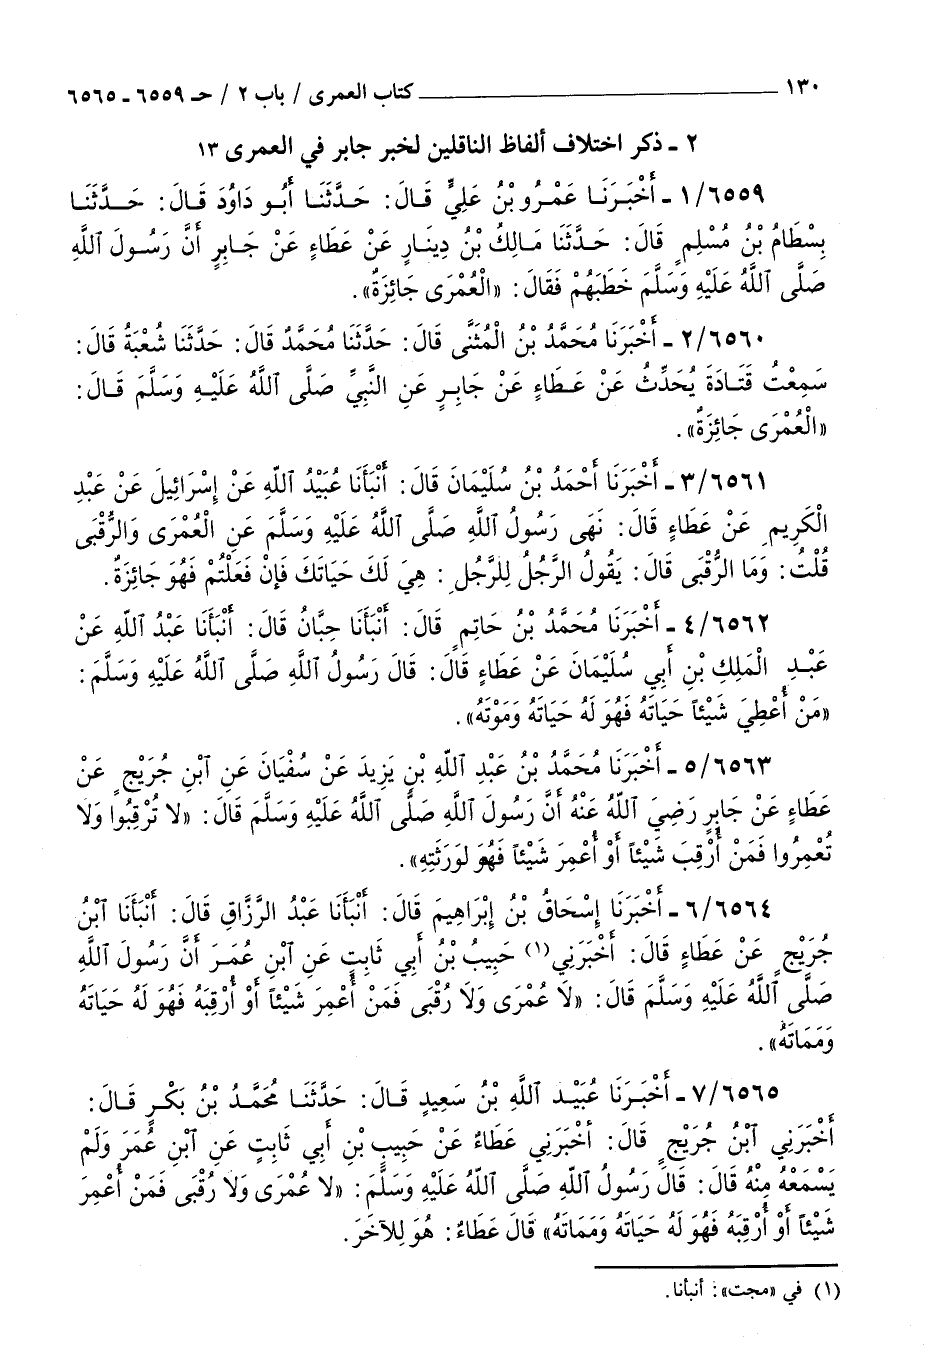 ١٣٠ ــــــــ كتاب العمرى / باب ٢ / حـ ٦٥٥٩ ـ ٦٥٦٥
٢ ـ ذكر اختلاف ألفاظ الناقلين لخبر جابر في العمرى ١٣
١/٦٥٥٩ ـ أَخْبَرَنَا عَمْرُو بْنُ عَلِيٍّ قَالَ: حَدَّثَنَا أَبُو دَاوُدَ قَالَ: حَدَّثَنَا
بِسْطَامُ بْنُ مُسْلِمٍ قَالَ: حَدَّثَنَا مَالِكُ بْنُ دِينَارٍ عَنْ عَطَاءٍ عَنْ جَابِرٍ أَنَّ رَسُولَ ٱللَّهِ
صَلَّى ٱللَّهُ عَلَيْهِ وَسَلَّمَ خَطَبَهُمْ فَقَالَ: «الْعُمْرَى جَائِزَةٌ».
٢/٦٥٦٠ ـ أَخْبَرَنَا مُحَمَّدُ بْنُ الْمُثَنَّى قَالَ: حَدَّثَنَا مُحَمَّدٌ قَالَ: حَدَّثَنَا شُعْبَةُ قَالَ:
سَمِعْتُ قَتَادَةَ يُحَدِّثُ عَنْ عَطَاءٍ عَنْ جَابِرٍ عَنِ النَّبِيِّ صَلَّى ٱللَّهُ عَلَيْهِ وَسَلَّمَ قَالَ:
«الْعُمْرَى جَائِزَةٌ».
٣/٦٥٦١ ـ أَخْبَرَنَا أَحْمَدُ بْنُ سُلَيْمَانَ قَالَ: أَنْبَأَنَا عُبَيْدُ ٱللَّهِ عَنْ إِسْرَائِيلَ عَنْ عَبْدِ
الْكَرِيمِ عَنْ عَطَاءٍ قَالَ: نَهَى رَسُولُ ٱللَّهِ صَلَّى ٱللَّهُ عَلَيْهِ وَسَلَّمَ عَنِ الْعُمْرَى وَالرُّقْبَى
قُلْتُ: وَمَا الرُّقْبَى قَالَ: يَقُولُ الرَّجُلُ لِلرَّجُلِ: هِيَ لَكَ حَيَاتَكَ فَإِنْ فَعَلْتُمْ فَهُوَ جَائِزَةٌ.
٤/٦٥٦٢ ـ أَخْبَرَنَا مُحَمَّدُ بْنُ حَاتِمٍ قَالَ: أَنْبَأَنَا حِبَّانُ قَالَ: أَنْبَأَنَا عَبْدُ ٱللَّهِ عَنْ
عَبْدِ الْمَلِكِ بْنِ أَبِي سُلَيْمَانَ عَنْ عَطَاءٍ قَالَ: قَالَ رَسُولُ ٱللَّهِ صَلَّى ٱللَّهُ عَلَيْهِ وَسَلَّمَ:
«مَنْ أُعْطِيَ شَيْئاً حَيَاتَهُ فَهُوَ لَهُ حَيَاتَهُ وَمَوْتَهُ».
٥/٦٥٦٣ ـ أَخْبَرَنَا مُحَمَّدُ بْنُ عَبْدِ ٱللَّهِ بْنِ يَزِيدَ عَنْ سُفْيَانَ عَنِ ٱبْنِ جُرَيْجٍ عَنْ
عَطَاءٍ عَنْ جَابِرٍ رَضِيَ ٱللَّهُ عَنْهُ أَنَّ رَسُولَ ٱللَّهِ صَلَّى ٱللَّهُ عَلَيْهِ وَسَلَّمَ قَالَ: «لا تُرْقِبُوا وَلا
تُعْمِرُوا فَمَنْ أُرْقِبَ شَيْئاً أَوْ أُعْمِرَ شَيْئاً فَهُوَ لِوَرَثَتِهِ».
٦/٦٥٦٤ ـ أَخْبَرَنَا إِسْحَاقُ بْنُ إِبْرَاهِيمَ قَالَ: أَنْبَأَنَا عَبْدُ الرَّزَّاقِ قَالَ: أَنْبَأَنَا ٱبْنُ
جُرَيْجٍ عَنْ عَطَاءٍ قَالَ: أَخْبَرَنِي (١) حَبِيبُ بْنُ أَبِي ثَابِتٍ عَنِ ٱبْنِ عُمَرَ أَنَّ رَسُولَ ٱللَّهِ
صَلَّى ٱللَّهُ عَلَيْهِ وَسَلَّمَ قَالَ: «لَا عُمْرَى وَلَا رُقْبَى فَمَنْ أُعْمِرَ شَيْئاً أَوْ أُرْقِبَهُ فَهُوَ لَهُ حَيَاتَهُ
وَمَمَاتَهُ».
٧/٦٥٦٥ ـ أَخْبَرَنَا عُبَيْدُ ٱللَّهِ بْنُ سَعِيدٍ قَالَ: حَدَّثَنَا مُحَمَّدُ بْنُ بَكْرٍ قَالَ:
أَخْبَرَنِي ٱبْنُ جُرَيْجٍ قَالَ: أَخْبَرَنِي عَطَاءٌ عَنْ حَبِيبِ بْنِ أَبِي ثَابِتٍ عَنِ ٱبْنِ عُمَرَ وَلَمْ
يَسْمَعْهُ مِنْهُ قَالَ: قَالَ رَسُولُ ٱللَّهِ صَلَّى ٱللَّهُ عَلَيْهِ وَسَلَّمَ: «لا عُمْرَى وَلا رُقْبَى فَمَنْ أُعْمِرَ
شَيْئاً أَوْ أُرْقِبَهُ فَهُوَ لَهُ حَيَاتَهُ وَمَمَاتَهُ» قَالَ عَطَاءٌ: هُوَ لِلآخَرَ.
(١) في «مجت»: أنبأنا.